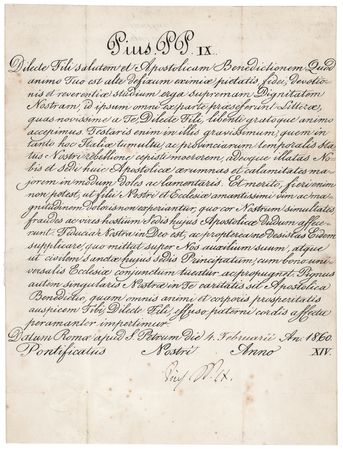 Pius PP. IX.
Dilecte Fili salutem et Apostolicam Benedictionem. Quod
animo Tuo est alte defixum eximiæ pietatis, fidei, devotio-
nis et reverentiæ studium erga supremam Dignitatem
Nostram, id ipsum omni ex parte præseferunt Litteræ,
quas novissime a Te, Dilecte Fili, libenti gratoque animo
accepimus. Testaris enim in illis gravissimum, quem in
tanto hoc Italiæ tumultu, ac provinciarum temporalis Sta-
tus Nostri rebellione cepisti moerorem, adeoque illatas No-
bis et Sedi huic Apostolicæ ærumnas et calamitates ma-
jorem in modum doles ac lamentaris. Et merito, fieri enim
non potest, ut filii Nostri et Ecclesiæ amantissimi vim ac ma-
gnitudinem doloris non experiantur, quo cor Nostrum simulatis
fraudes ac vires hostium Sedis hujus Apostolicæ dudum affece-
runt. Fiducia Nostra in Deo est, ac propterea ne desistas Eidem
supplicare, quo mittat super Nos auxilium suum, atque
ut civilem Sanctæ hujus Sedis Principatum, cum bono uni-
versalis Ecclesiæ conjunctum tueatur ac propugnet. Pignus
autem singularis Nostræ in Te caritatis sit Apostolica
Benedictio, quam omnis animi et corporis prosperitatis
auspicem Tibi, Dilecte Fili, effuso paterni cordis affectu
peramanter impertimur.
Datum Romæ apud S. Petrum die 4. Februarii An. 1860.
Pontificatus Nostri Anno XIV.
Pius PP. IX.